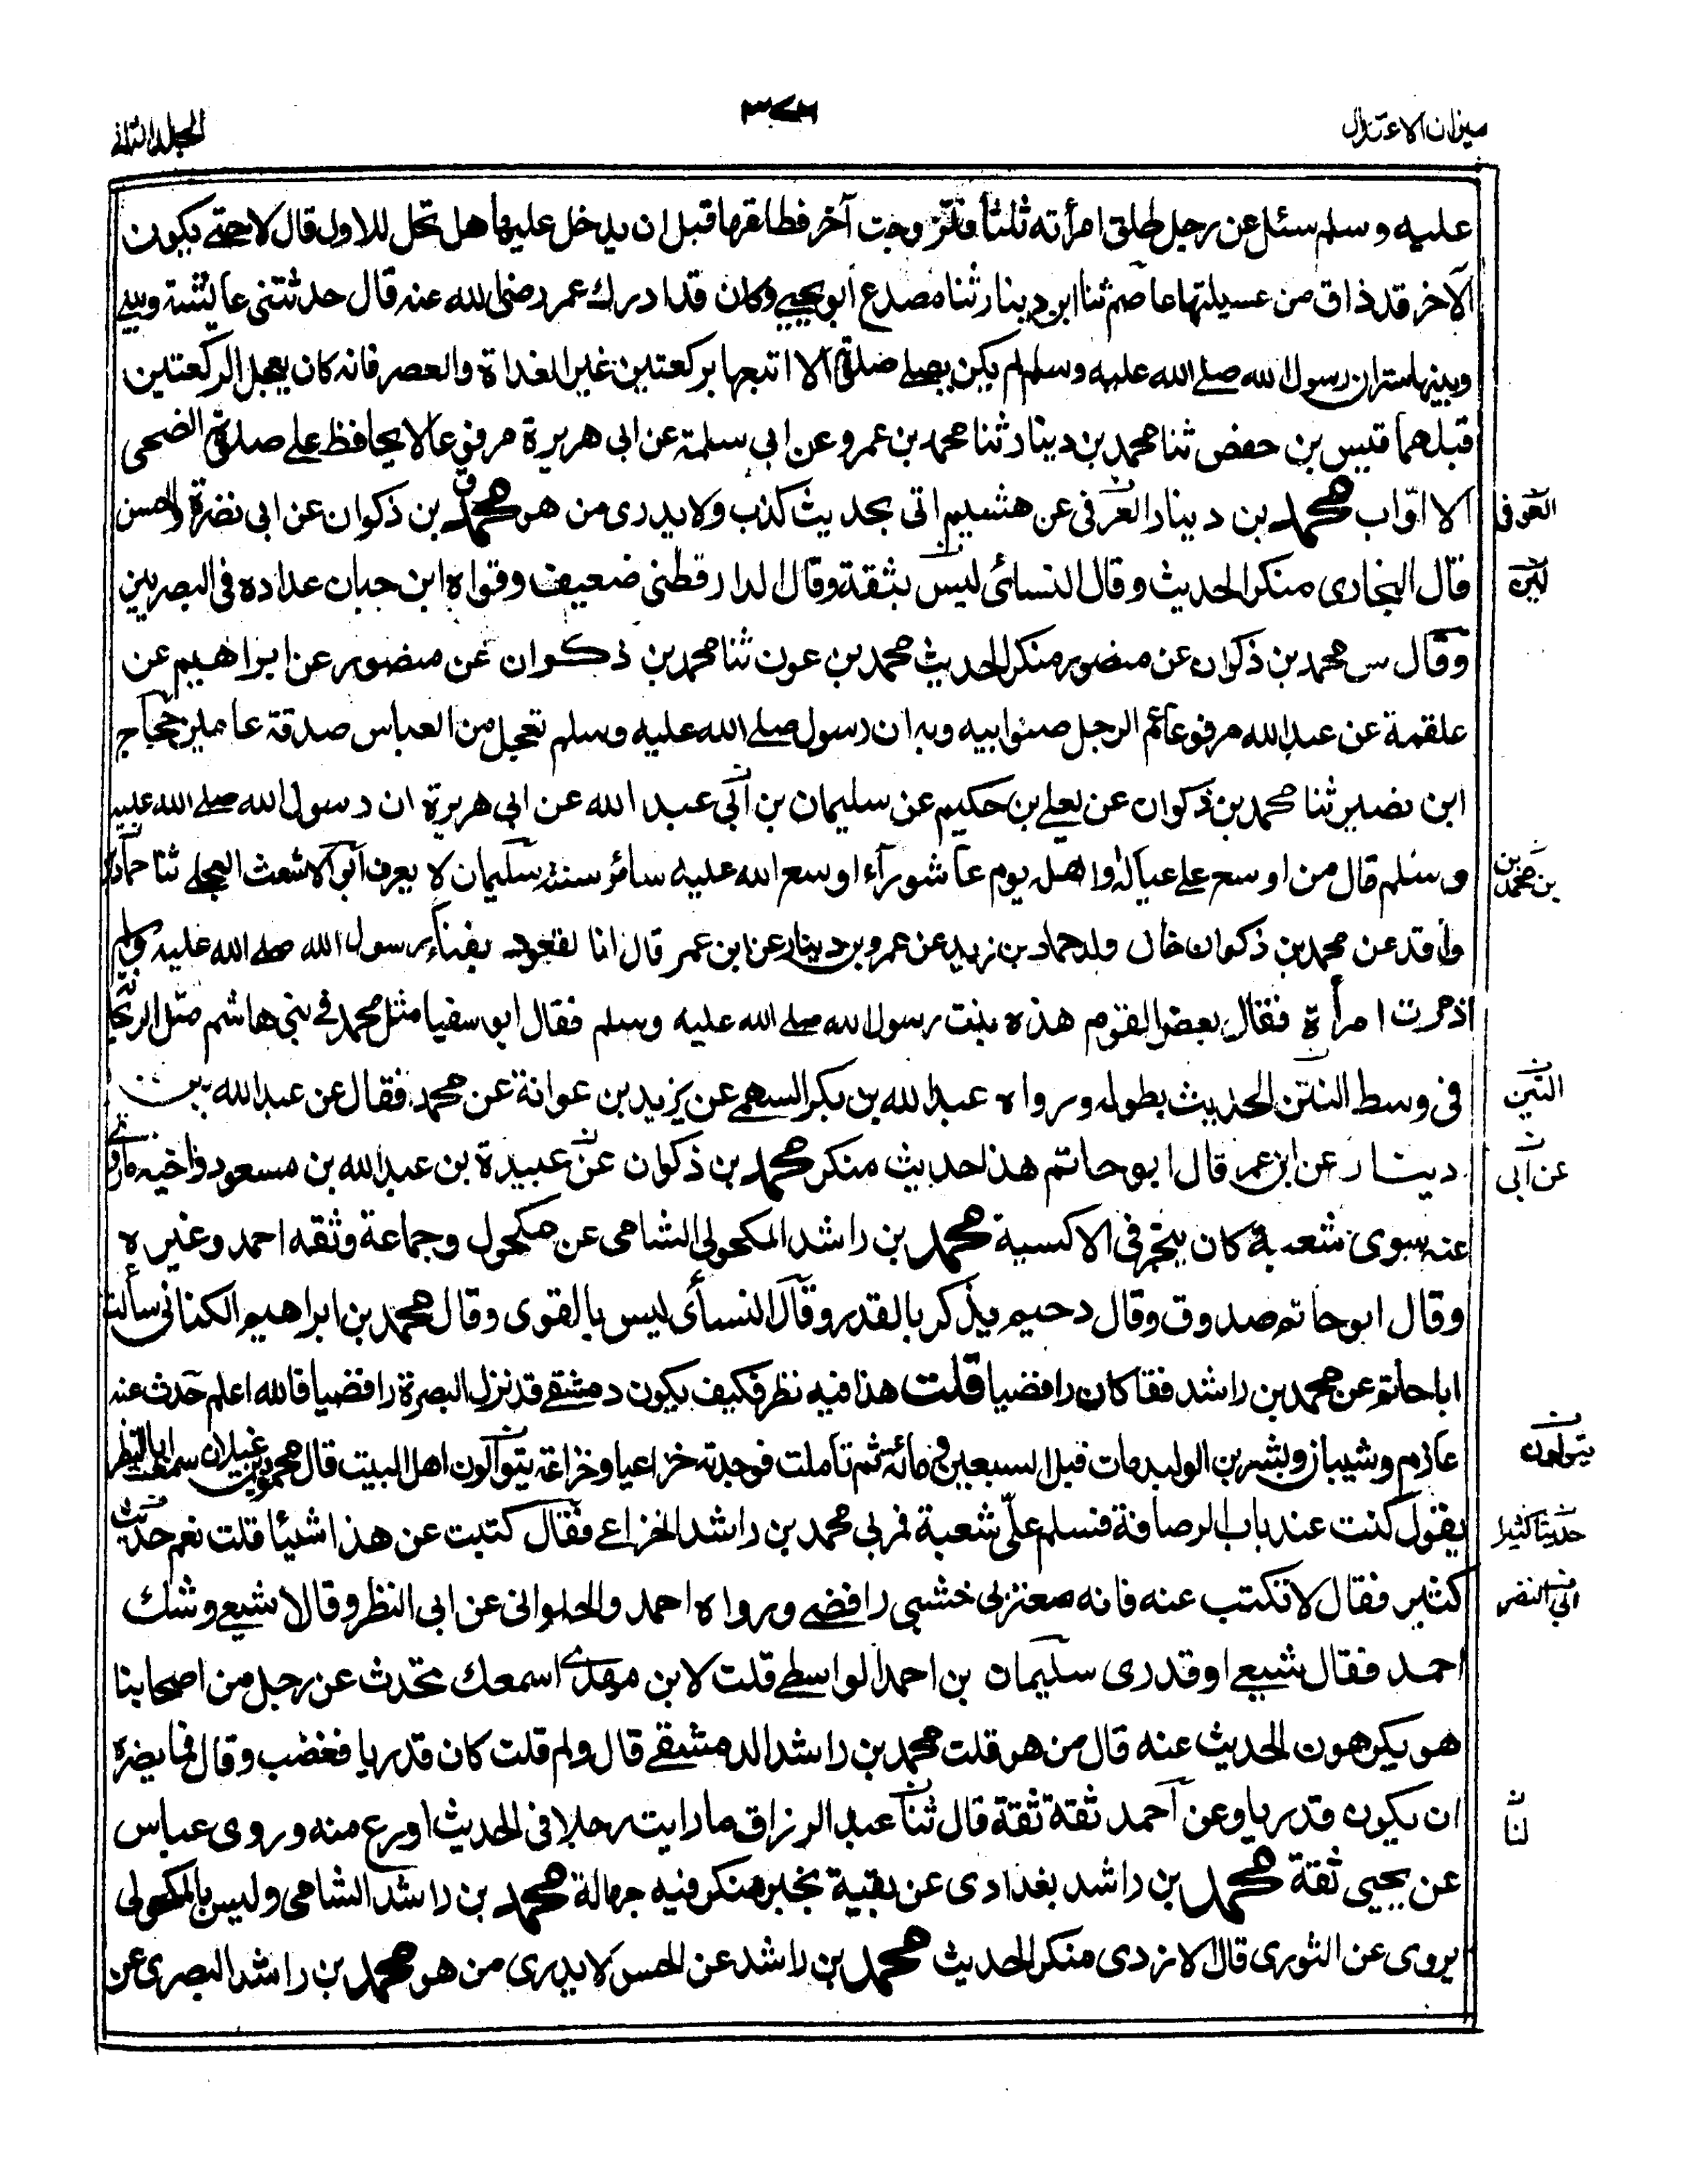 ميزان الاعتدال
٣٧٢
المجلد الثاني
عليه وسلم سئل عن رجل طلق امرأته ثلثا فتزوجت آخر فطلقها قبل ان يدخل عليها هل تحل للاول قال لا حتى يكون
الآخر قد ذاق من عسيلتها عاصم ثنا ابن دينار ثنا مصدع أبو يحيى وكان قد ادرك عمر رضي الله عنه قال حدثتني عائشة وبيني
وبينها ستران رسول الله صلى الله عليه وسلم لم يكن يصلي صلوة الا اتبعها بركعتين غير الغداة والعصر فانه كان يعجل الركعتين
قبلهما قيس بن حفص ثنا محمد بن دينار ثنا محمد بن عمرو عن ابي سلمة عن ابي هريرة مرفوعا لا يحافظ على صلوة الضحى
الا اوّاب محمد بن دينار العرفي عن هشيم اتى بحديث كذب ولا يدرى من هو محمد ق بن ذكوان عن ابي نضرة والحسن
العوفي
قال البخاري منكر الحديث وقال النسائي ليس بثقة وقال الدارقطني ضعيف وقواه ابن حبان عداده في البصريين
وقال س محمد بن ذكوان عن منصور منكر الحديث محمد بن عون ثنا محمد بن ذكوان عن منصور عن ابراهيم عن
علقمة عن عبد الله مرفوعا عم الرجل صنو ابيه وبه ان رسول صلى الله عليه وسلم تعجل من العباس صدقة عامين حجاج
ابن نصير ثنا محمد بن ذكوان عن يعلى بن حكيم عن سليمان بن أبي عبد الله عن ابي هريرة ان رسول الله صلى الله عليه
وسلم قال من اوسع على عياله واهله يوم عاشوراء اوسع الله عليه سائر سنته سليمان لا يعرف أبو الاشعث العجلي ثنا حماد بن
بن محمد بن
واقد عن محمد بن ذكوان خال ولد حماد بن زيد عن عمرو بن دينار عن ابن عمر قال انا لقعود بفناء رسول الله صلى الله عليه وسلم
اذ مرت امرأة فقال بعض القوم هذه بنت رسول الله صلى الله عليه وسلم فقال ابو سفيا مثل محمد في بني هاشم مثل الريحا
في وسط النتن الحديث بطوله ورواه عبد الله بن بكر السهمي عن يزيد بن عوانة عن محمد فقال عن عبد الله بن
التين
دينار عن ابن عمر قال ابو حاتم هذا حديث منكر محمد بن ذكوان عن عبيدة بن عبد الله بن مسعود واخيه ما روى
عن ابي
عنه سوى شعبة كان يتجر في الاكسية محمد بن راشد المكحولي الشامي عن مكحول وجماعة وثقه احمد وغيره
وقال ابو حاتم صدوق وقال دحيم يذكر بالقدر وقال النسائي ليس بالقوى وقال محمد بن ابراهيم الكناني سألت
ابا حاتم عن محمد بن راشد فقا كان رافضيا قلت هذا فيه نظر فكيف يكون دمشقي قد نزل البصرة رافضيا فالله اعلم حدث عنه
عازم وشيبان وبشر بن الوليد مات قبل السبعين ومائة ثم تأملت فوجدته خزاعيا وخزاعة يتوآلون اهل البيت قال محمود بن غيلان سمعت ابا النظر
يتولون
يقول كنت عند باب الرصافة فسلم علىّ شعبة فمر بي محمد بن راشد الخزاعي فقال كتبت عن هذا شيئا قلت نعم حديث
حديثا كثيرا
كثير فقال لا تكتب عنه فانه معتزلي خشبي رافضي ورواه احمد والحلواني عن ابي النظر وقالا شيعي وشك
ابي النضر
احمد فقال شيعي او قدرى سليمان بن احمد الواسطي قلت لابن مهدي اسمعك تحدث عن رجل من اصحابنا
هو يكرهون الحديث عنه قال من هو قلت محمد بن راشد الدمشقي قال ولم قلت كان قدريا فغضب وقال فما يضره
ان يكون قدريا وعن أحمد ثقة ثقة قال ثنا عبد الرزاق ما رايت رجلا في الحديث اورع منه وروى عباس
لنا
عن يحيى ثقة محمد بن راشد بغدادي عن بقية بخبر منكر فيه جهالة محمد بن راشد الشامي وليس بالمكحولي
يروى عن الثورى قال الازدى منكر الحديث محمد بن راشد عن الحسن لا يدرى من هو محمد بن راشد البصرى عن